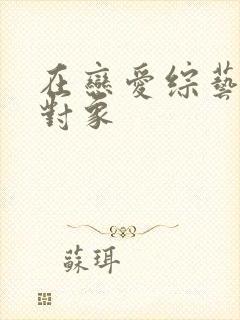 在戀愛綜藝
對象
蘇珥